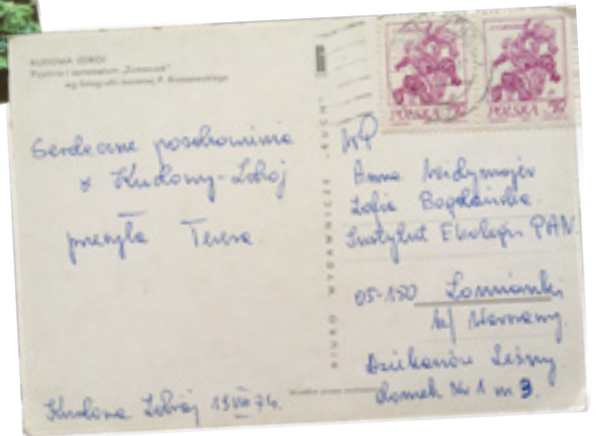 KUDOWA ZDRÓJ
Pijalnia i sanatorium „Zameczek”
wg fotografii barwnej P. Krassowskiego
Serdeczne pozdrowienia
z Kudowy-Zdrój
przesyła Teresa.
Kudowa Zdrój 13 VIII 74.
BIURO WYDAWNICZE „RUCH”
POLSKA 50
POLSKA 50
WP
Anna
Zofia Bogdańska
Instytut Ekologii PAN
05-150 Łomianki
k/ Warszawy.
Dziekanów Leśny
domek Nr 1 m 3.